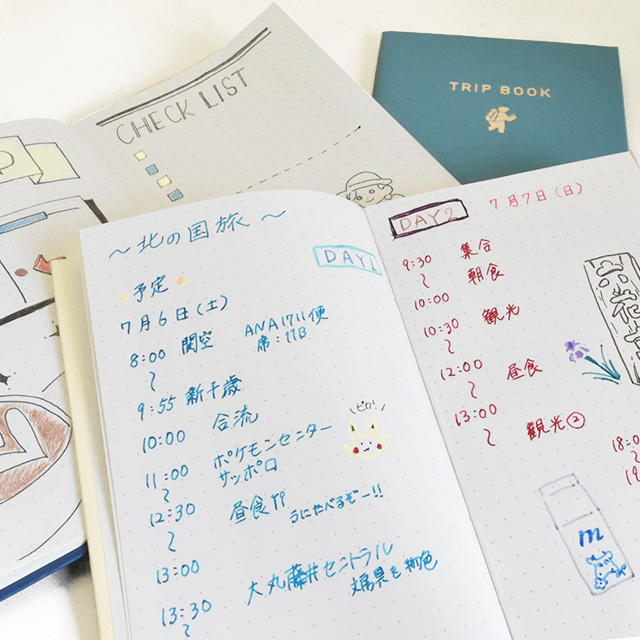 CHECK LIST
TRIP BOOK
P
～北の国旅～
DAY1
予定
7月6日(土)
8:00 関空 ANA1711便
～ 席:17B
9:55 新千歳
10:00 合流
11:00 ポケモンセンター
～ サッポロ
12:30 昼食 うにたべるぞー!!
～
13:00
13:30 大丸藤井セントラル
～ 文房具を物色
ピカ!
DAY2 7月7日(日)
9:30 集合
～ 朝食
10:00
10:30 観光
～
12:00 昼食
～
13:00 観光②
～
18:0
～
19
m